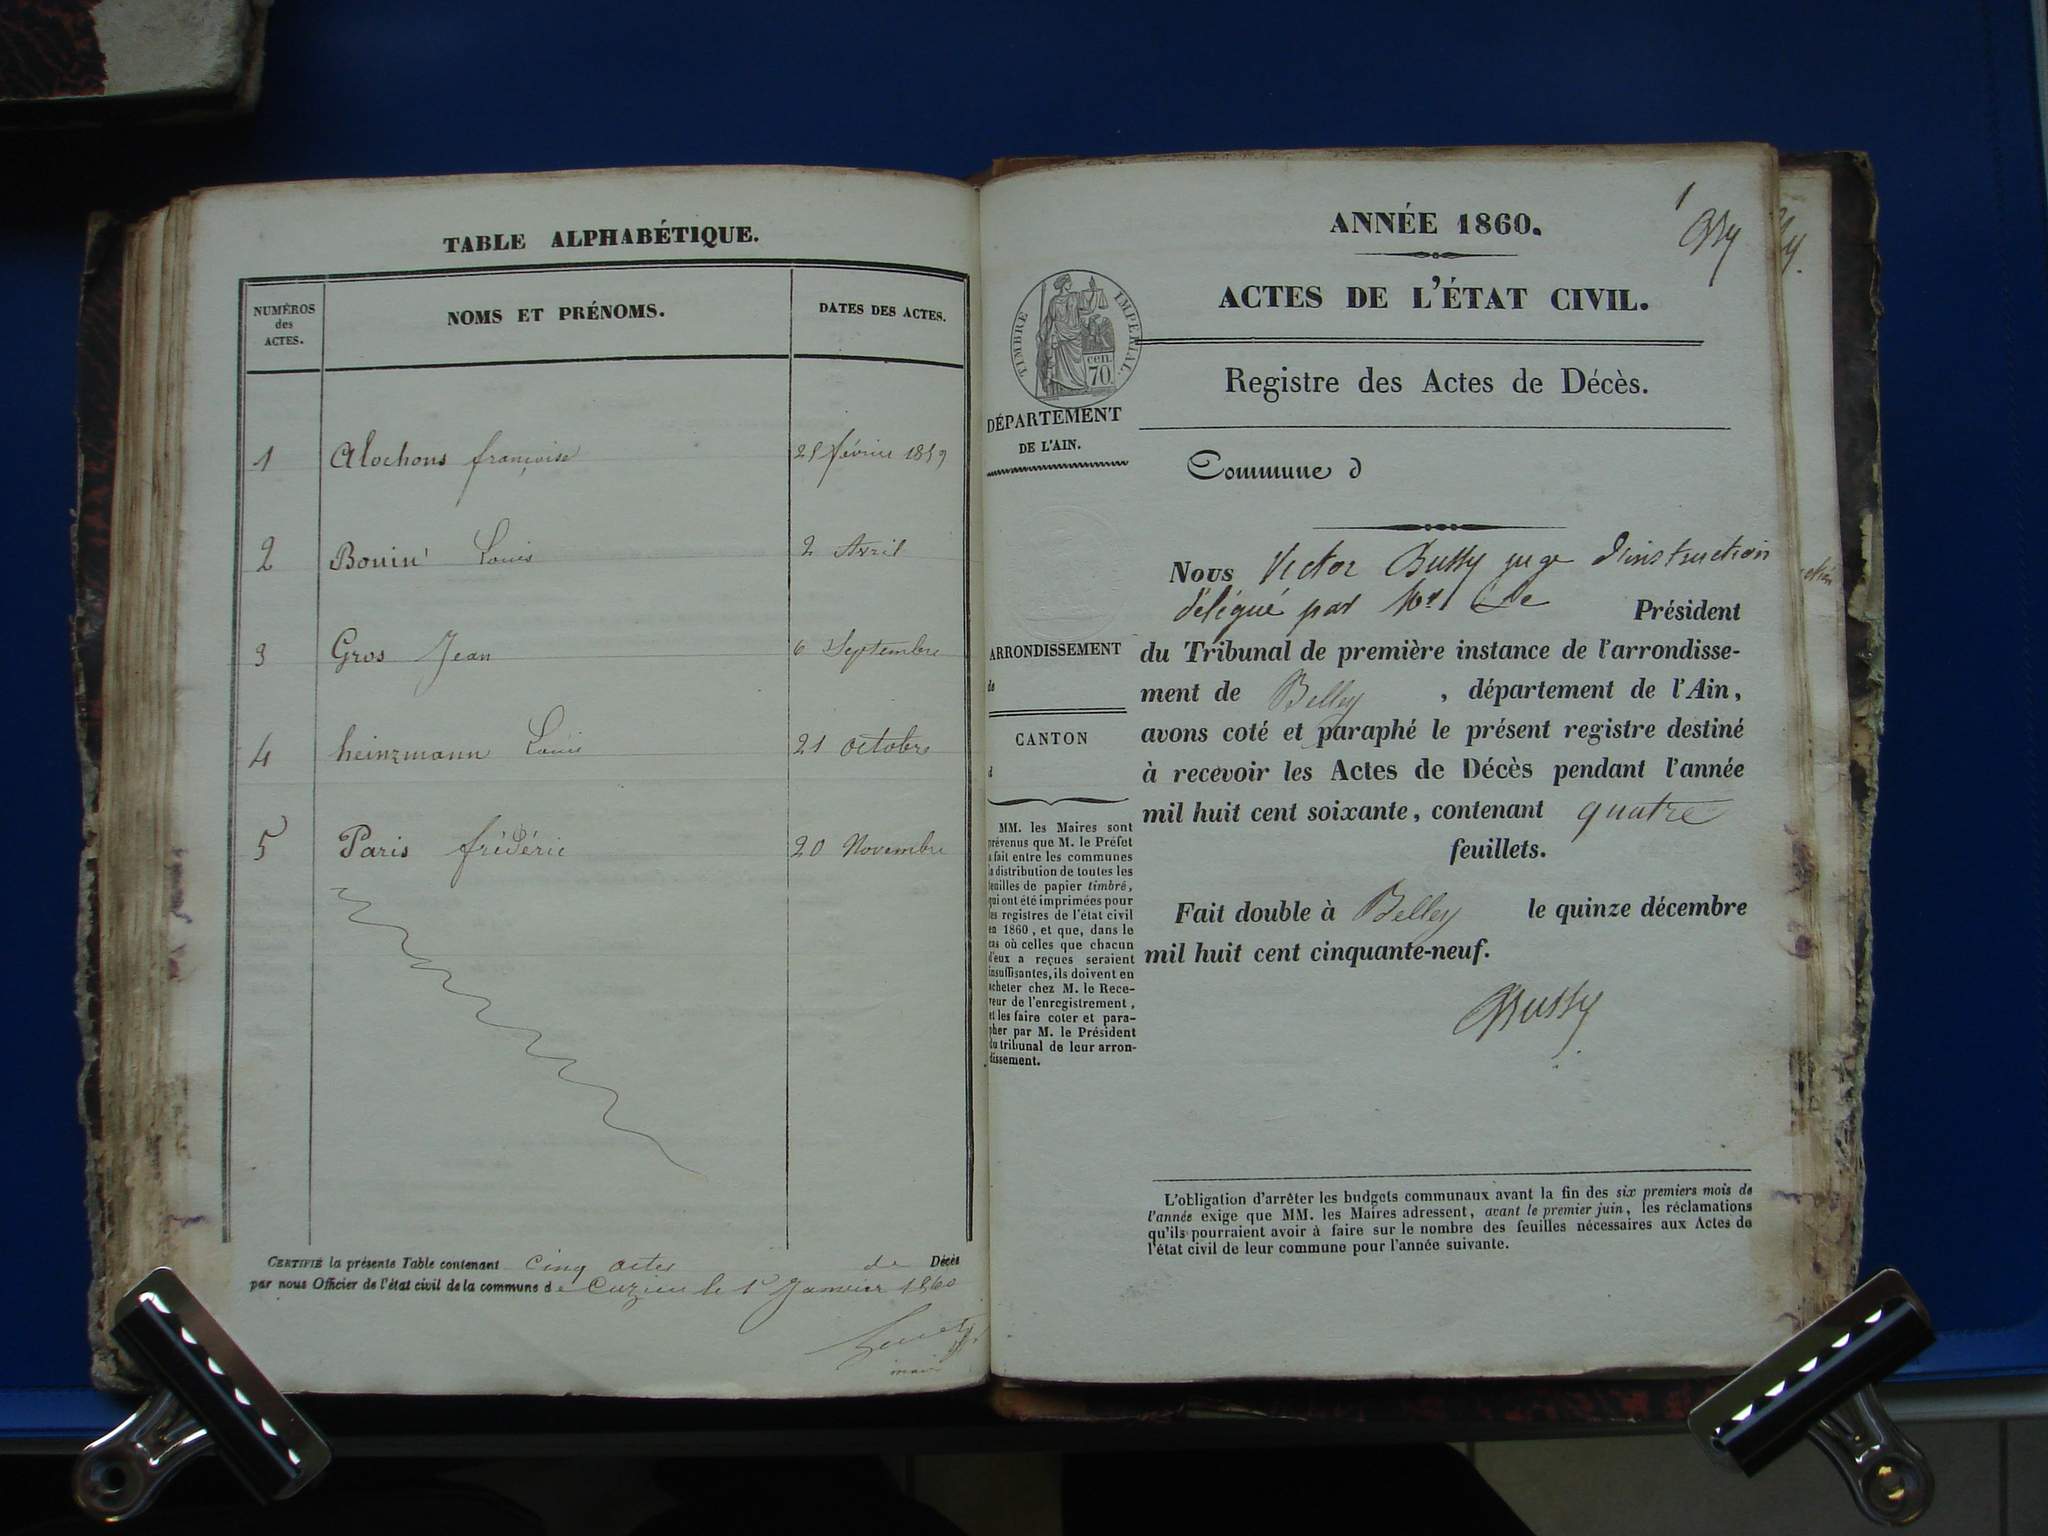 TABLE ALPHABÉTIQUE.
NUMÉROS des ACTES.
NOMS ET PRÉNOMS.
DATES DES ACTES.
1 Alochons françoise 25 février 1859
2 Bouin Louis 2 Avril
3 Gros Jean 6 Septembre
4 heinzmann Louis 21 octobre
5 Paris frédéric 20 Novembre
CERTIFIÉ la présente Table contenant cinq actes de Décès
par nous Officier de l'état civil de la commune de Cuzieu le 1er Janvier 1860
maire
1
ANNÉE 1860.
ACTES DE L'ÉTAT CIVIL.
TIMBRE IMPÉRIAL.
cen.
70
Registre des Actes de Décès.
DÉPARTEMENT
DE L'AIN.
Commune d
Nous Victor Bussy juge d'instruction
délégué par Mr Le Président
du Tribunal de première instance de l'arrondisse-
ment de Belley, département de l'Ain,
avons coté et paraphé le présent registre destiné
à recevoir les Actes de Décès pendant l'année
mil huit cent soixante, contenant quatre
feuillets.
Fait double à Belley le quinze décembre
mil huit cent cinquante-neuf.
Bussy
ARRONDISSEMENT
de
CANTON
d
MM. les Maires sont
prévenus que M. le Préfet
a fait entre les communes
la distribution de toutes les
feuilles de papier timbré,
qui ont été imprimées pour
les registres de l'état civil
en 1860, et que, dans le
cas où celles que chacun
d'eux a reçues seraient
insuffisantes, ils doivent en
acheter chez M. le Rece-
veur de l'enregistrement,
et les faire coter et para-
pher par M. le Président
du tribunal de leur arron-
dissement.
L'obligation d'arrêter les budgets communaux avant la fin des six premiers mois de
l'année exige que MM. les Maires adressent, avant le premier juin, les réclamations
qu'ils pourraient avoir à faire sur le nombre des feuilles nécessaires aux Actes de
l'état civil de leur commune pour l'année suivante.